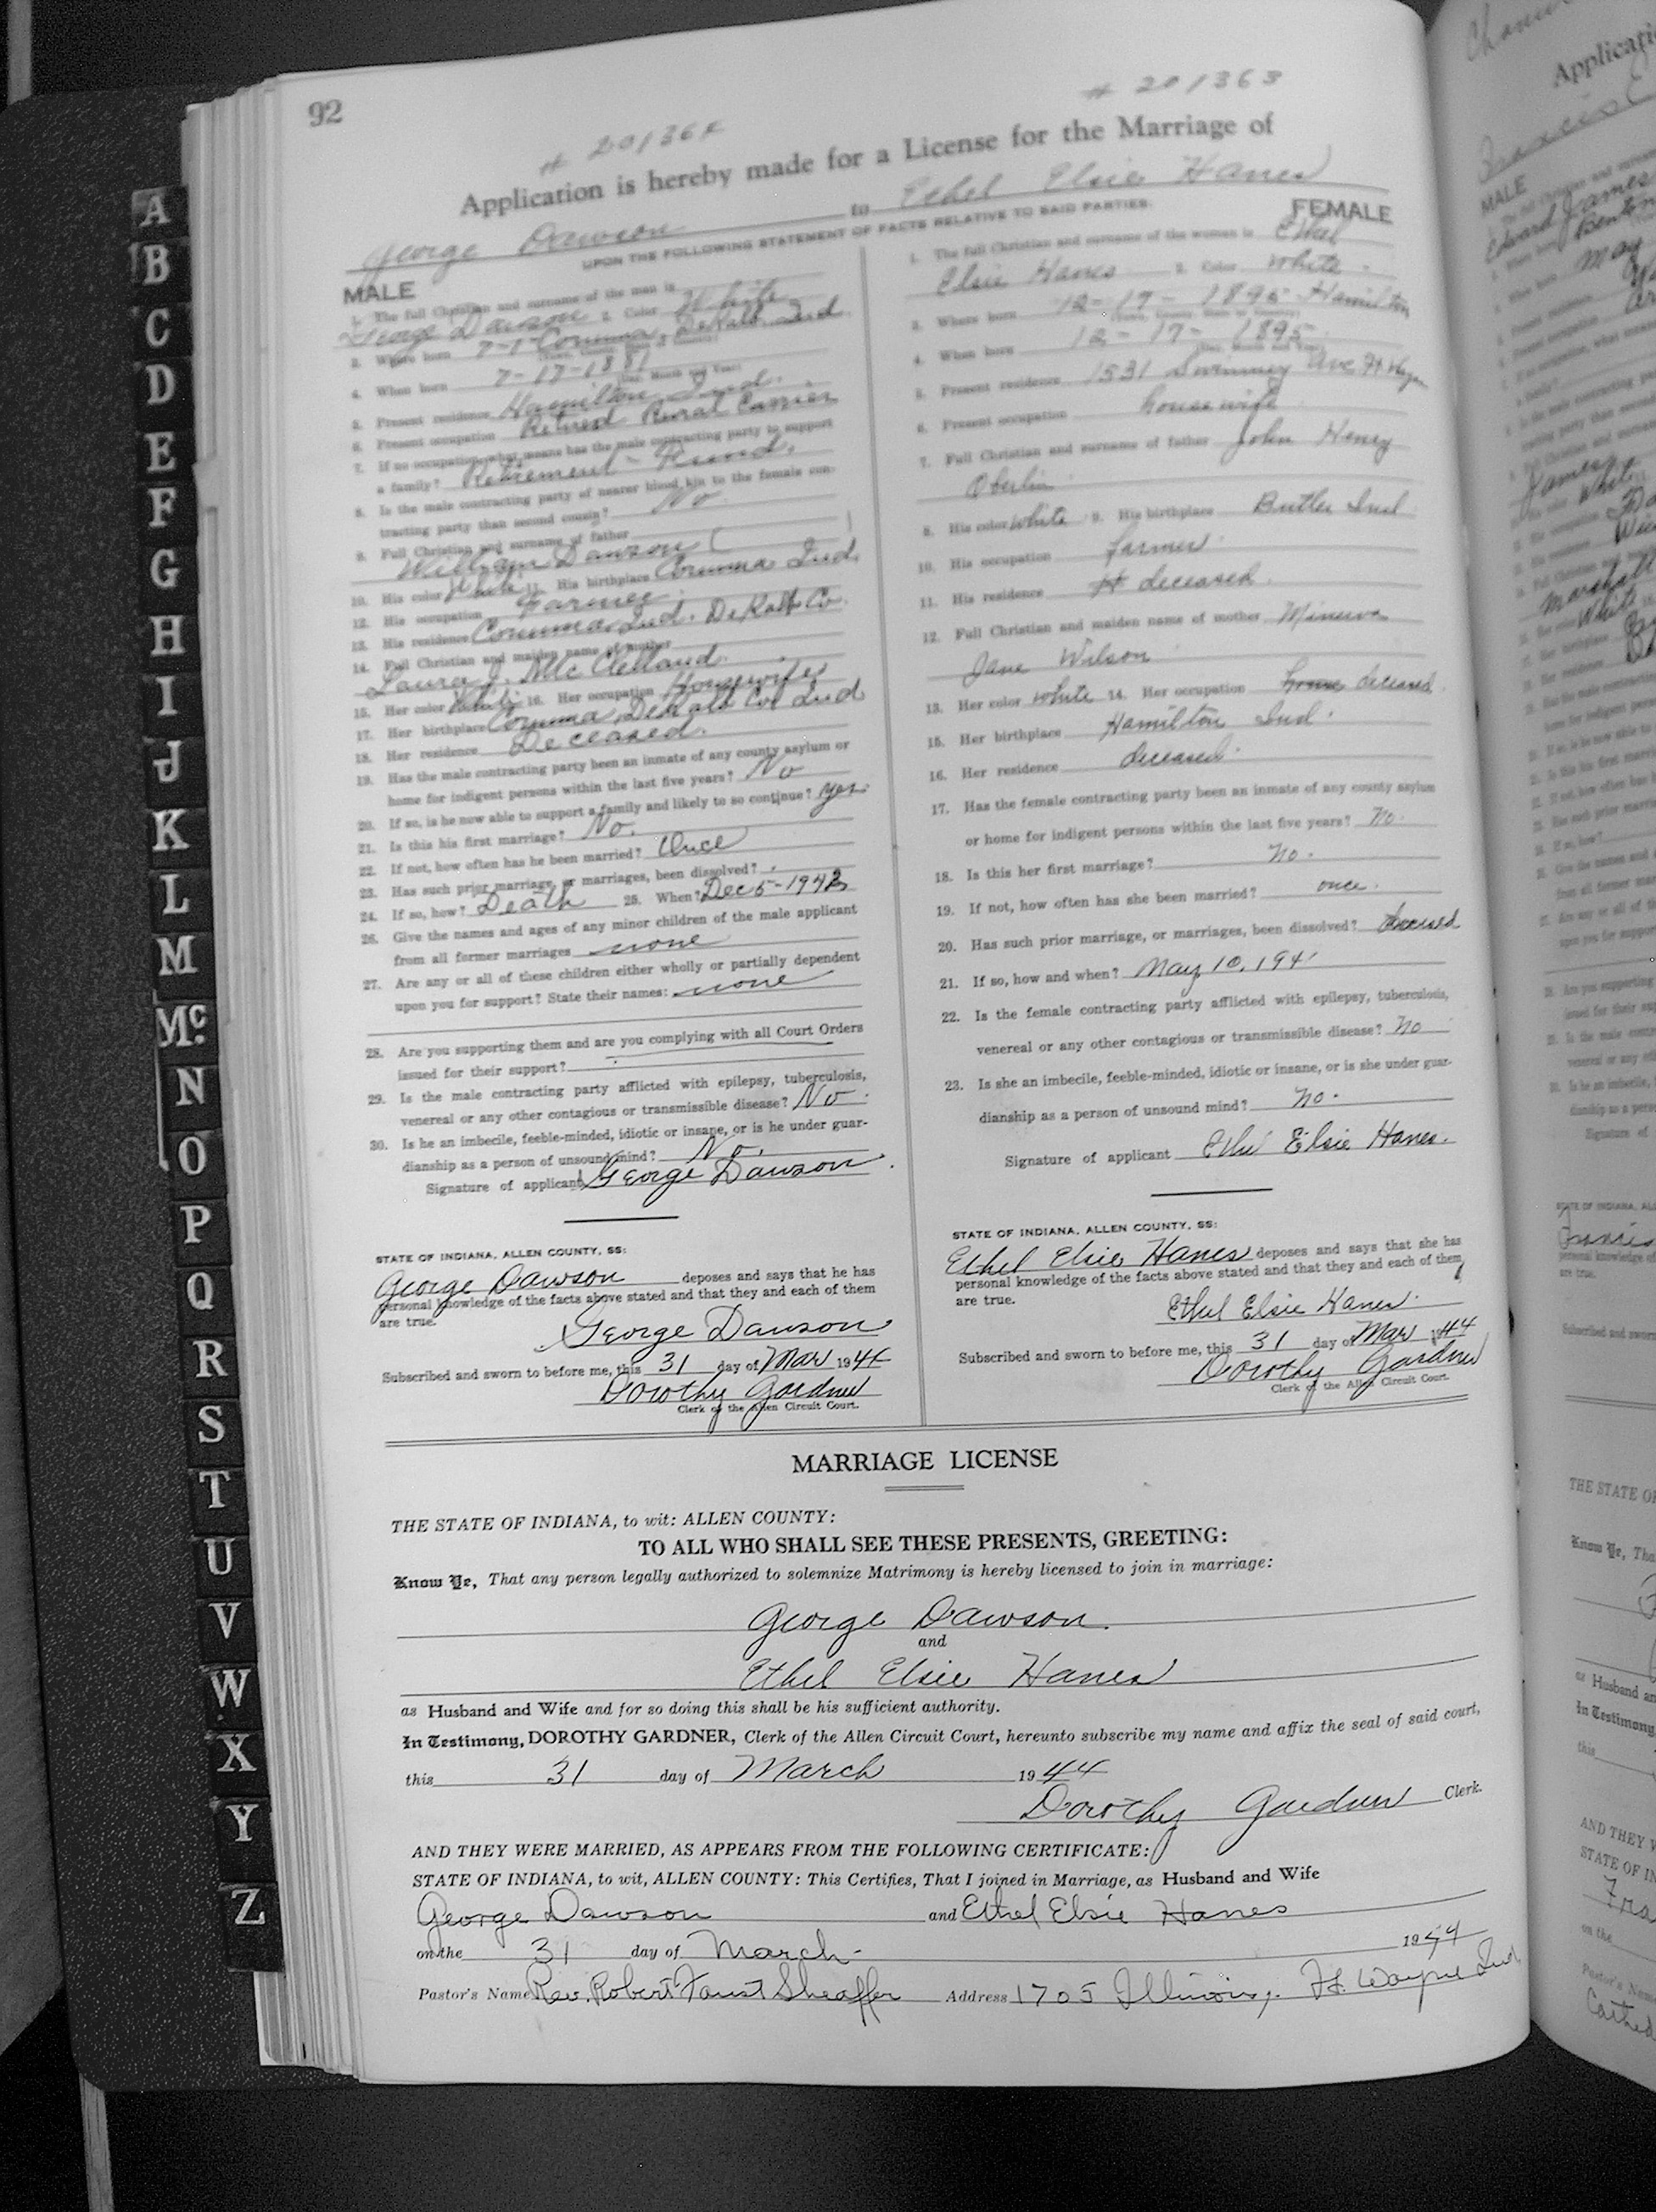 92
# 20136
# 201363
Application is hereby made for a License for the Marriage of
George Dawson to Ethel Elsie Hanes
UPON THE FOLLOWING STATEMENT OF FACTS RELATIVE TO SAID PARTIES.
MALE
1. The full Christian and surname of the man is
George Dawson 2. Color White
3. Where born 7-1- Corunna, DeKalb, Ind
4. When born 7-17-1881
5. Present residence Hamilton, Ind.
6. Present occupation Retired Rural Carrier
7. If no occupation, what means has the male contracting party to support
a family? Retirement - Fund.
8. Is the male contracting party of nearer blood kin to the female con-
tracting party than second cousin? No
9. Full Christian and surname of father
William Dawson
10. His color White 11. His birthplace Corunna Ind.
12. His occupation Farmer
13. His residence Corunna, Ind. DeKalb Co.
14. Full Christian and maiden name of mother
Laura J. McClelland.
15. Her color White 16. Her occupation Housewife
17. Her birthplace Corunna, DeKalb Co. Ind
18. Her residence Deceased.
19. Has the male contracting party been an inmate of any county asylum or
home for indigent persons within the last five years? No
20. If so, is he now able to support a family and likely to so continue? yes
21. Is this his first marriage? No.
22. If not, how often has he been married? Once
23. Has such prior marriage, or marriages, been dissolved?
24. If so, how? Death 25. When? Dec 5-194
26. Give the names and ages of any minor children of the male applicant
from all former marriages none
27. Are any or all of these children either wholly or partially dependent
upon you for support? State their names: none
28. Are you supporting them and are you complying with all Court Orders
issued for their support?
29. Is the male contracting party afflicted with epilepsy, tuberculosis,
venereal or any other contagious or transmissible disease? No.
30. Is he an imbecile, feeble-minded, idiotic or insane, or is he under guar-
dianship as a person of unsound mind? No.
Signature of applicant George Dawson
STATE OF INDIANA, ALLEN COUNTY, SS:
George Dawson deposes and says that he has
personal knowledge of the facts above stated and that they and each of them
are true.
George Dawson
Subscribed and sworn to before me, this 31 day of Mar 1944
Dorothy Gardner
Clerk of the Allen Circuit Court.
FEMALE
1. The full Christian and surname of the woman is Ethel
Elsie Hanes 2. Color White
3. Where born 12-17-1895 Hamilton
4. When born 12-17-1895
5. Present residence 1531 Ave Ft Wayne
6. Present occupation housewife
7. Full Christian and surname of father John Henry
Oberlin
8. His color white 9. His birthplace Butler Ind
10. His occupation farmer
11. His residence deceased
12. Full Christian and maiden name of mother Minerva
Jane Wilson
13. Her color white 14. Her occupation home deceased
15. Her birthplace Hamilton Ind.
16. Her residence deceased
17. Has the female contracting party been an inmate of any county asylum
or home for indigent persons within the last five years? No.
18. Is this her first marriage? no.
19. If not, how often has she been married? once.
20. Has such prior marriage, or marriages, been dissolved? deceased
21. If so, how and when? May 10, 194
22. Is the female contracting party afflicted with epilepsy, tuberculosis,
venereal or any other contagious or transmissible disease? No
23. Is she an imbecile, feeble-minded, idiotic or insane, or is she under guar-
dianship as a person of unsound mind? no.
Signature of applicant Ethel Elsie Hanes.
STATE OF INDIANA, ALLEN COUNTY, SS:
Ethel Elsie Hanes deposes and says that she has
personal knowledge of the facts above stated and that they and each of them
are true.
Ethel Elsie Hanes.
Subscribed and sworn to before me, this 31 day of Mar 1944
Dorothy Gardner
Clerk of the Allen Circuit Court.
MARRIAGE LICENSE
THE STATE OF INDIANA, to wit: ALLEN COUNTY:
TO ALL WHO SHALL SEE THESE PRESENTS, GREETING:
Know Ye, That any person legally authorized to solemnize Matrimony is hereby licensed to join in marriage:
George Dawson.
and
Ethel Elsie Hanes
as Husband and Wife and for so doing this shall be his sufficient authority.
In Testimony, DOROTHY GARDNER, Clerk of the Allen Circuit Court, hereunto subscribe my name and affix the seal of said court,
this 31 day of March 1944
Dorothy Gardner Clerk.
AND THEY WERE MARRIED, AS APPEARS FROM THE FOLLOWING CERTIFICATE:
STATE OF INDIANA, to wit, ALLEN COUNTY: This Certifies, That I joined in Marriage, as Husband and Wife
George Dawson and Ethel Elsie Hanes
on the 31 day of March 1944
Pastor's Name Rev. Robert Faust Sheaffer Address 1705 Illinois, Ft. Wayne Ind
A
B
C
D
E
F
G
H
I
J
K
L
M
Mc.
N
O
P
Q
R
S
T
U
V
W
X
Y
Z